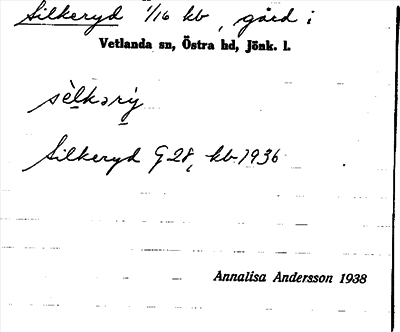 Silkeryd 1/16 kb, gård i
Vetlanda sn, Östra hd, Jönk. l.
sèlkərỳ
Silkeryd G 28, kb 1936
Annalisa Andersson 1938